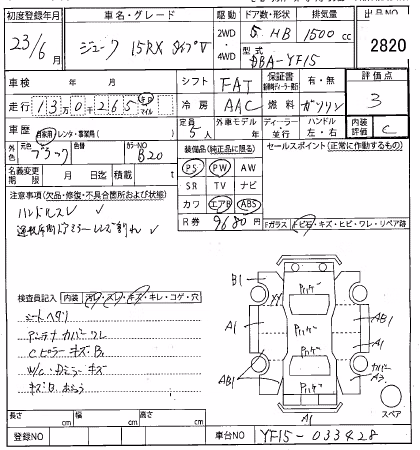 初度登録年月 車名・グレード 駆動 ドア数・形状 排気量 出品NO
23/6月 ジューク 15RX タイプV 2WD・4WD 5 HB 1500cc 2820
型式 DBA-YF15
車検 年 月 シフト FAT 保証書 有・無 評価点
走行 13万0千265 km マイル 冷房 AAC 燃料 ガソリン 3
車歴 自家用・レンタ・事業用( ) 定員 5人 外車モデル 年 ディーラー・並行 ハンドル 左・右 内装評価 C
外色 元色 ブラック 色替 カラーNO B20
装備品(純正品に限る) セールスポイント(正常に動作するもの)
名義変更期限 月 日迄 積載 t
PS PW AW
SR TV ナビ
カワ エアB ABS
R券 9680円
注意事項(欠品・修復・不具合箇所および状態)
ハンドルスレ
Fガラス 飛石・キズ・ヒビ・ワレ・リペア跡
検査員記入 内装 汚れ・スレ・キズ・キレ・コゲ・穴
シートヘタリ
アンテナカバーワレ
CピラーキズB
キズB
B1
A1
AB1
AB1
A1
カバーA3
A1
スペア
長さ cm 幅 cm 高さ cm
登録NO 車台NO YF15-033428